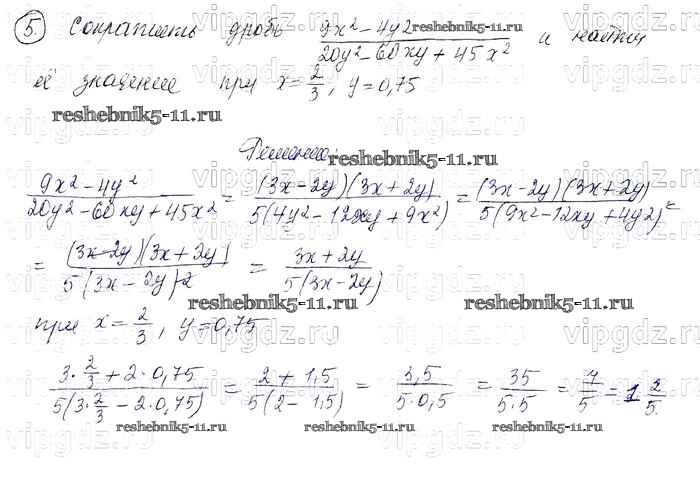 5. Сократить дробь (9x² - 4y2)/(20y² - 60xy + 45x²) и найти
её значение при x = 2/3, y = 0,75
reshebnik5-11.ru
Решение:
(9x² - 4y²)/(20y² - 60xy + 45x²) = ((3x - 2y)(3x + 2y))/(5(4y² - 12xy + 9x²)) = ((3x - 2y)(3x + 2y))/(5(9x² - 12xy + 4y2)) =
= ((3x - 2y)(3x + 2y))/(5(3x - 2y)2) = (3x + 2y)/(5(3x - 2y))
reshebnik5-11.ru
при x = 2/3, y = 0,75
(3·2/3 + 2·0,75)/(5(3·2/3 - 2·0,75)) = (2 + 1,5)/(5(2 - 1,5)) = 3,5/(5·0,5) = 35/(5·5) = 7/5 = 1 2/5.
reshebnik5-11.ru
vipgdz.ru